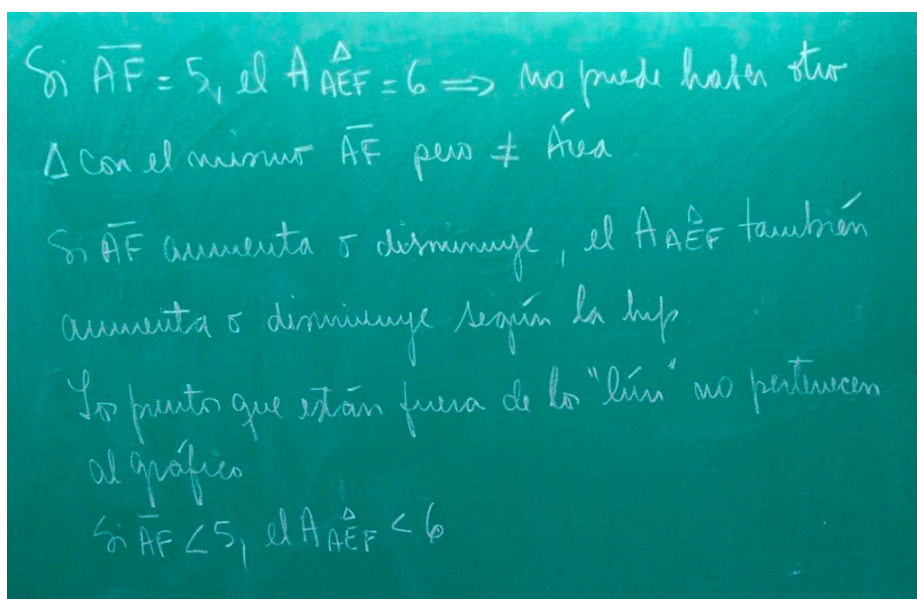 Si A̅F̅ = 5, el A AÊF = 6 ⟹ no puede haber otro
Δ con el mismo A̅F̅ pero ≠ Área
Si A̅F̅ aumenta o disminuye, el A AÊF también
aumenta o disminuye según la hip
Los puntos que están fuera de los "lím" no pertenecen
al gráfico
Si A̅F̅ < 5, el A AÊF < 6